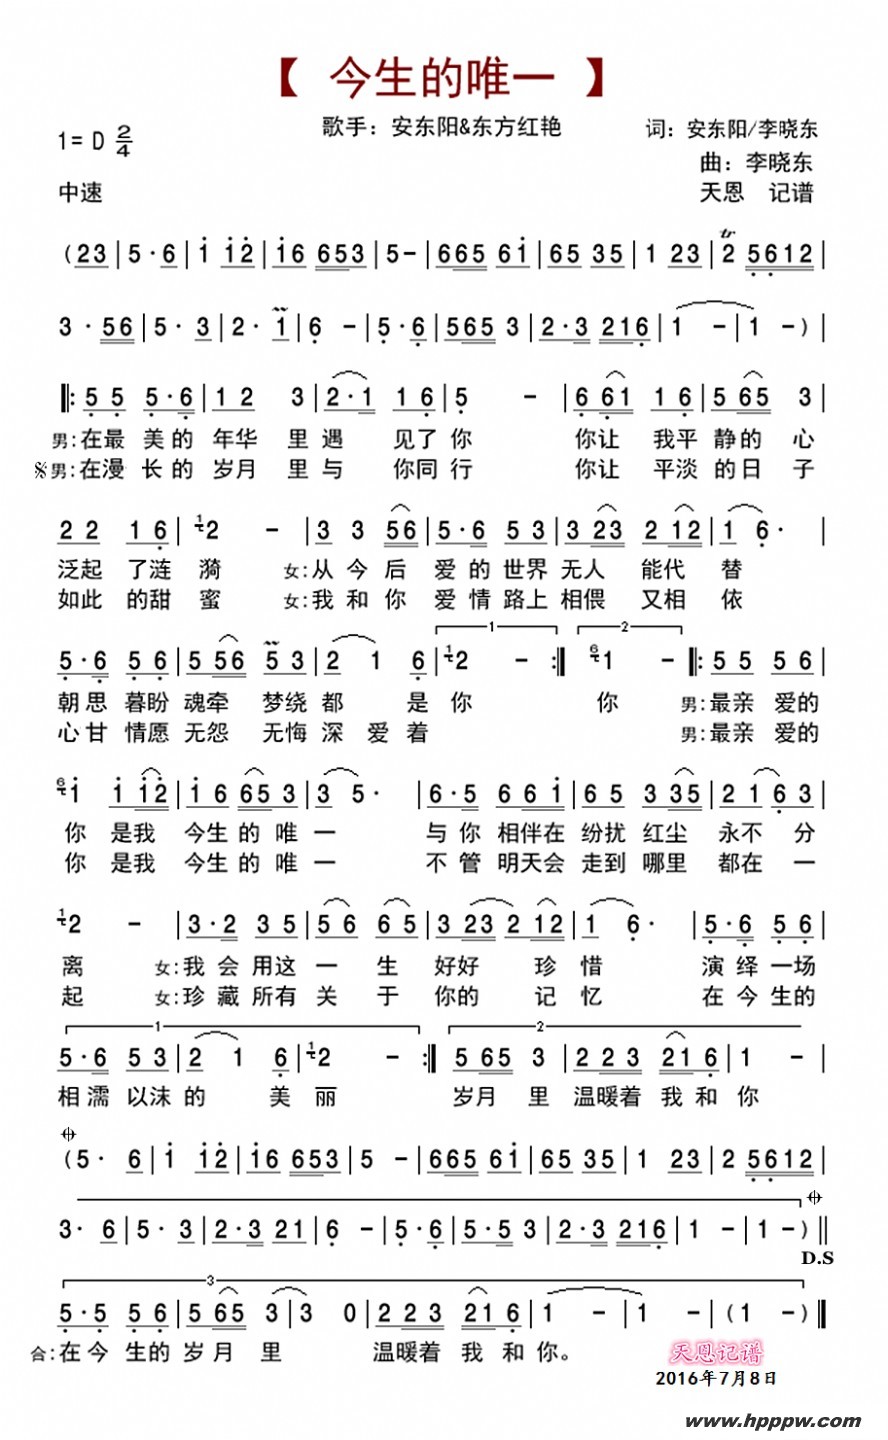 【 今生的唯一 】
歌手：安东阳&东方红艳 词：安东阳/李晓东
1= D 2/4
曲：李晓东
中速 天恩 记谱
( 23 | 5 · 6 | i i2 | i6 653 | 5 - | 665 6i | 65 35 | 1 23 | 2 5612 |
3 · 56 | 5 · 3 | 2 · 1 | 6 - | 5 · 6 | 565 3 | 2·3 216 | 1 - | 1 - ) |
‖: 5 5 5·6 | 1 2 3 | 2·1 1 6 | 5 - | 6 61 1 6 | 5 65 3 |
男:在最 美的 年华 里遇 见了你 你让 我平 静的 心
男:在漫 长的 岁月 里与 你同行 你让 平淡 的日 子
2 2 1 6 | 2 - | 3 3 56 | 5·6 5 3 | 3 23 2 12 | 1 6· |
泛起 了涟 漪 女:从今后 爱的世界无人 能代 替
如此 的甜 蜜 女:我和你 爱情路上相偎 又相 依
1 2
5·6 5 6 | 5 56 5 3 | 2 1 6 | 2 - :‖ 1 - ‖: 5 5 5 6 |
朝思暮盼魂牵 梦绕都 是你 你 男:最亲 爱的
心甘情愿无怨 无悔深 爱着 男:最亲 爱的
i i i2 | i 6 65 3 | 3 5· | 6·5 6 6 i | 6 5 3 35 | 2 1 6 3 |
你 是我 今生的唯 一 与你 相伴在纷扰红尘 永不 分
你 是我 今生的唯 一 不管 明天会走到哪里 都在 一
2 - | 3·2 3 5 | 5 6 6 5 | 3 23 2 12 | 1 6· | 5·6 5 6 |
离 女:我会用这 一 生 好好 珍惜 演绎一场
起 女:珍藏所有 关 于 你的 记忆 在今生的
1 2
5·6 5 3 | 2 1 6 | 2 - :‖ 5 65 3 | 2 2 3 21 6 | 1 - |
相濡以沫的 美丽 岁月 里温暖着我和你
( 5· 6 | i i2 | i6 653 | 5 - | 665 6i | 565 35 | 1 23 | 2 5612 |
3· 6 | 5· 3 | 2·3 21 | 6 - | 5·6 | 5·5 3 | 2·3 216 | 1 - | 1 - ) ‖
D.S
3
5·5 5 6 | 5 65 3 | 3 0 | 2 2 3 21 6 | 1 - | 1 - | ( 1 - ) ‖
合:在今生的岁月里 温暖着我和你。
天恩记谱
2016年7月8日
www.hpppw.com